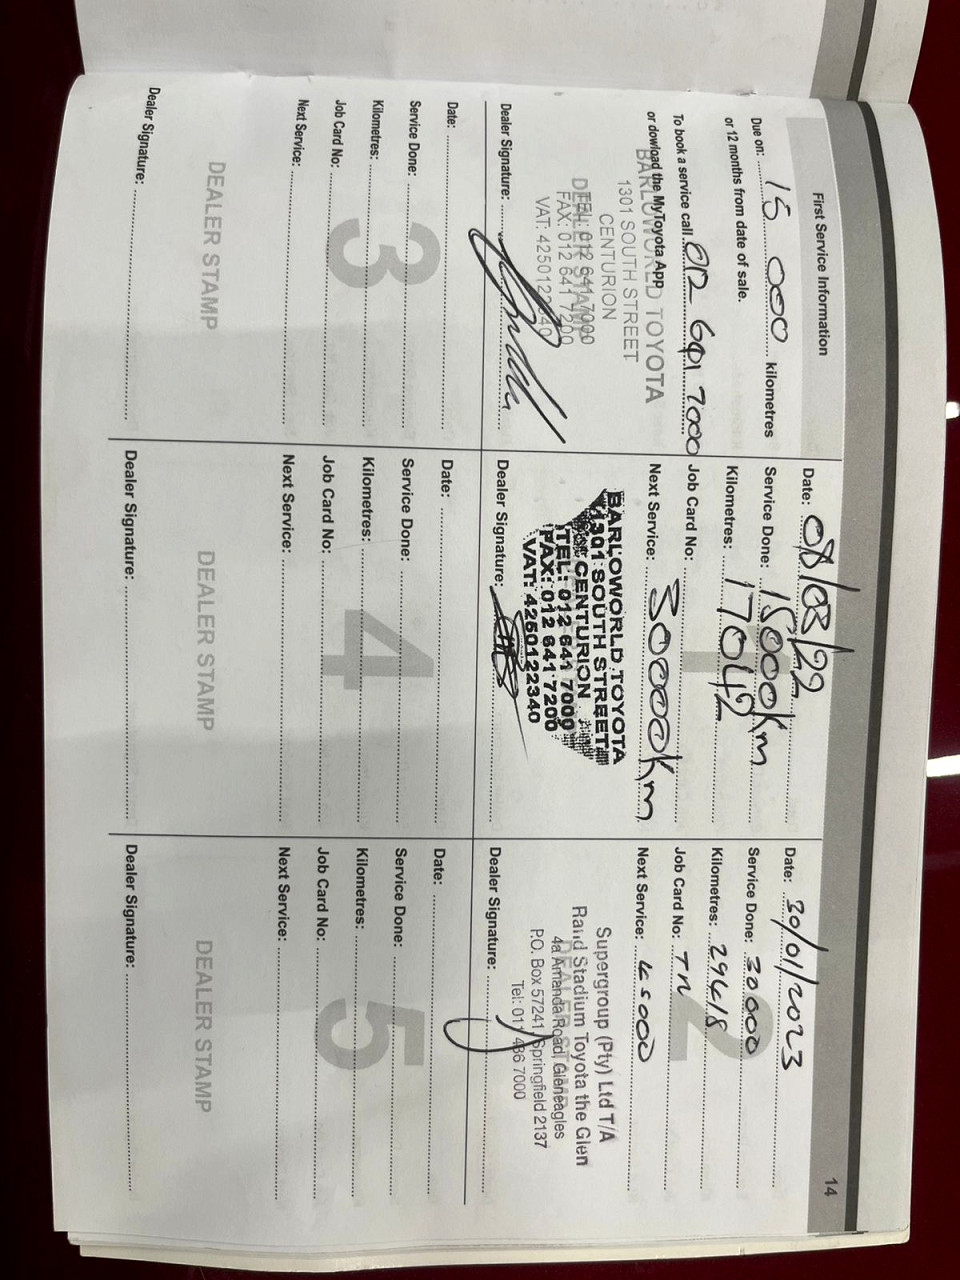 First Service Information
14
Due on: 15 000 kilometres
or 12 months from date of sale.
To book a service call 012 641 7000
or dowload the MyToyota App
BARLOWORLD TOYOTA
1301 SOUTH STREET
CENTURION
DEALER STAMP
TEL: 012 641 7000
FAX: 012 641 7200
VAT: 4250122340
Dealer Signature:
Date: 08/08/22
Service Done: 15000Km
Kilometres: 17042
Job Card No:
Next Service: 30000Km
1
BARLOWORLD TOYOTA
1301 SOUTH STREET
CENTURION
TEL: 012 641 7000
FAX: 012 641 7200
VAT: 4250122340
Dealer Signature:
Date: 30/01/2023
Service Done: 30000
Kilometres: 29418
Job Card No: TN
Next Service: 45000
2
Supergroup (Pty) Ltd T/A
Rand Stadium Toyota the Glen
DEALER STAMP
4a Amanda Road, Gleneagles
P.O. Box 57241 Springfield 2137
Tel: 011 436 7000
Dealer Signature:
Date:
Service Done:
Kilometres:
Job Card No:
Next Service:
3
DEALER STAMP
Dealer Signature:
Date:
Service Done:
Kilometres:
Job Card No:
Next Service:
4
DEALER STAMP
Dealer Signature:
Date:
Service Done:
Kilometres:
Job Card No:
Next Service:
5
DEALER STAMP
Dealer Signature: